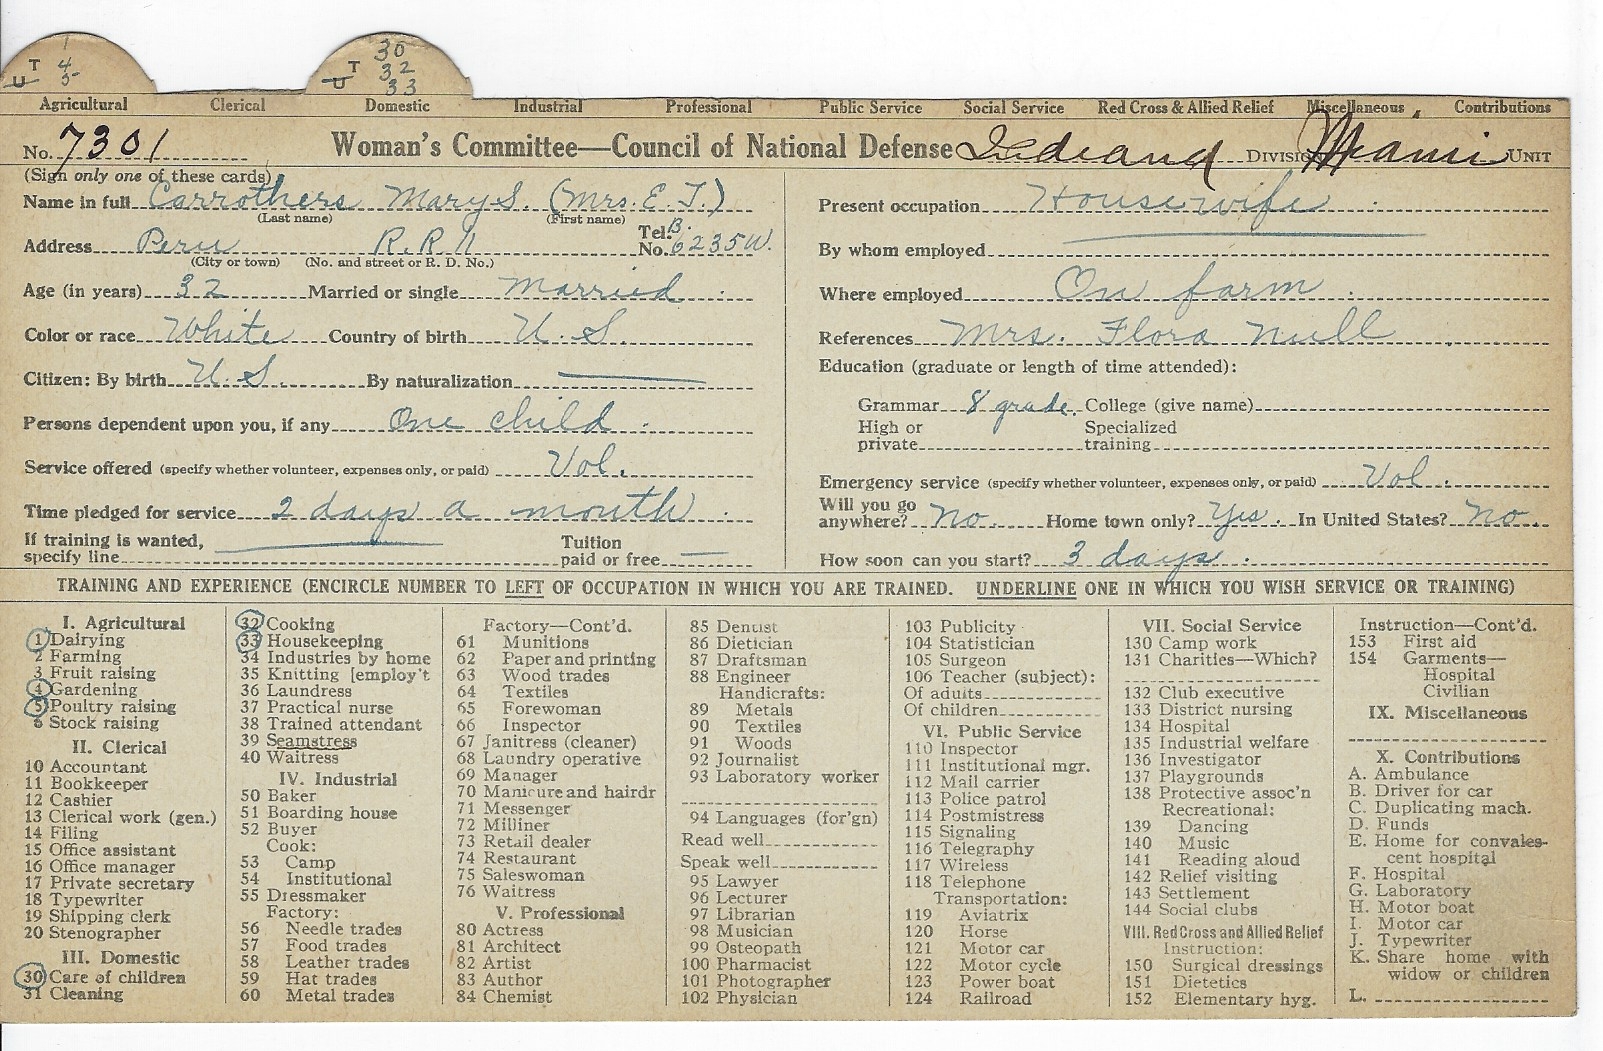 1
T 4
U 5
30
T 32
U 33
Agricultural Clerical Domestic Industrial Professional Public Service Social Service Red Cross & Allied Relief Miscellaneous Contributions
No. 7301 Woman's Committee—Council of National Defense Indiana Division Miami Unit
(Sign only one of these cards)
Name in full Carrothers Mary S. (Mrs. E. T.)
(Last name) (First name)
Address Peru R.R. 11 Tel. No. B. 6235W.
(City or town) (No. and street or R. D. No.)
Age (in years) 32 Married or single Married
Color or race White Country of birth U.S.
Citizen: By birth U.S. By naturalization ——
Persons dependent upon you, if any One child.
Service offered (specify whether volunteer, expenses only, or paid) Vol.
Time pledged for service 2 days a month.
If training is wanted,
specify line —— Tuition paid or free —
Present occupation Housewife
By whom employed
Where employed On farm.
References Mrs. Flora Null
Education (graduate or length of time attended):
Grammar 8 grade. College (give name)
High or private Specialized training
Emergency service (specify whether volunteer, expenses only, or paid) Vol.
Will you go anywhere? No Home town only? Yes. In United States? No
How soon can you start? 3 days.
TRAINING AND EXPERIENCE (ENCIRCLE NUMBER TO LEFT OF OCCUPATION IN WHICH YOU ARE TRAINED. UNDERLINE ONE IN WHICH YOU WISH SERVICE OR TRAINING)
I. Agricultural
1 Dairying
2 Farming
3 Fruit raising
4 Gardening
5 Poultry raising
6 Stock raising
II. Clerical
10 Accountant
11 Bookkeeper
12 Cashier
13 Clerical work (gen.)
14 Filing
15 Office assistant
16 Office manager
17 Private secretary
18 Typewriter
19 Shipping clerk
20 Stenographer
III. Domestic
30 Care of children
31 Cleaning
32 Cooking
33 Housekeeping
34 Industries by home
35 Knitting [employ't
36 Laundress
37 Practical nurse
38 Trained attendant
39 Seamstress
40 Waitress
IV. Industrial
50 Baker
51 Boarding house
52 Buyer
Cook:
53 Camp
54 Institutional
55 Dressmaker
Factory:
56 Needle trades
57 Food trades
58 Leather trades
59 Hat trades
60 Metal trades
Factory—Cont'd.
61 Munitions
62 Paper and printing
63 Wood trades
64 Textiles
65 Forewoman
66 Inspector
67 Janitress (cleaner)
68 Laundry operative
69 Manager
70 Manicure and hairdr
71 Messenger
72 Milliner
73 Retail dealer
74 Restaurant
75 Saleswoman
76 Waitress
V. Professional
80 Actress
81 Architect
82 Artist
83 Author
84 Chemist
85 Dentist
86 Dietician
87 Draftsman
88 Engineer
Handicrafts:
89 Metals
90 Textiles
91 Woods
92 Journalist
93 Laboratory worker
94 Languages (for'gn)
Read well
Speak well
95 Lawyer
96 Lecturer
97 Librarian
98 Musician
99 Osteopath
100 Pharmacist
101 Photographer
102 Physician
103 Publicity
104 Statistician
105 Surgeon
106 Teacher (subject):
Of adults
Of children
VI. Public Service
110 Inspector
111 Institutional mgr.
112 Mail carrier
113 Police patrol
114 Postmistress
115 Signaling
116 Telegraphy
117 Wireless
118 Telephone
Transportation:
119 Aviatrix
120 Horse
121 Motor car
122 Motor cycle
123 Power boat
124 Railroad
VII. Social Service
130 Camp work
131 Charities—Which?
132 Club executive
133 District nursing
134 Hospital
135 Industrial welfare
136 Investigator
137 Playgrounds
138 Protective assoc'n
Recreational:
139 Dancing
140 Music
141 Reading aloud
142 Relief visiting
143 Settlement
144 Social clubs
VIII. Red Cross and Allied Relief
Instruction:
150 Surgical dressings
151 Dietetics
152 Elementary hyg.
Instruction—Cont'd.
153 First aid
154 Garments—
Hospital
Civilian
IX. Miscellaneous
X. Contributions
A. Ambulance
B. Driver for car
C. Duplicating mach.
D. Funds
E. Home for convales-
cent hospital
F. Hospital
G. Laboratory
H. Motor boat
I. Motor car
J. Typewriter
K. Share home with
widow or children
L.